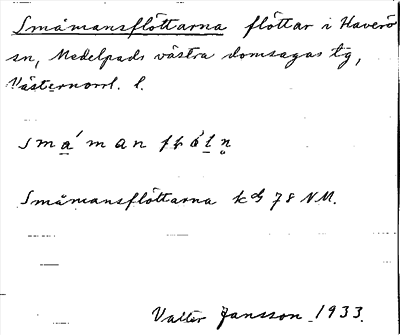 Småmansflöttarna flöttar i Haverö
sn, Medelpads västra domsagas tg,
Västernorrl. l.
Småmansflöttarna kbl 78 NM.
Valter Jansson 1933.